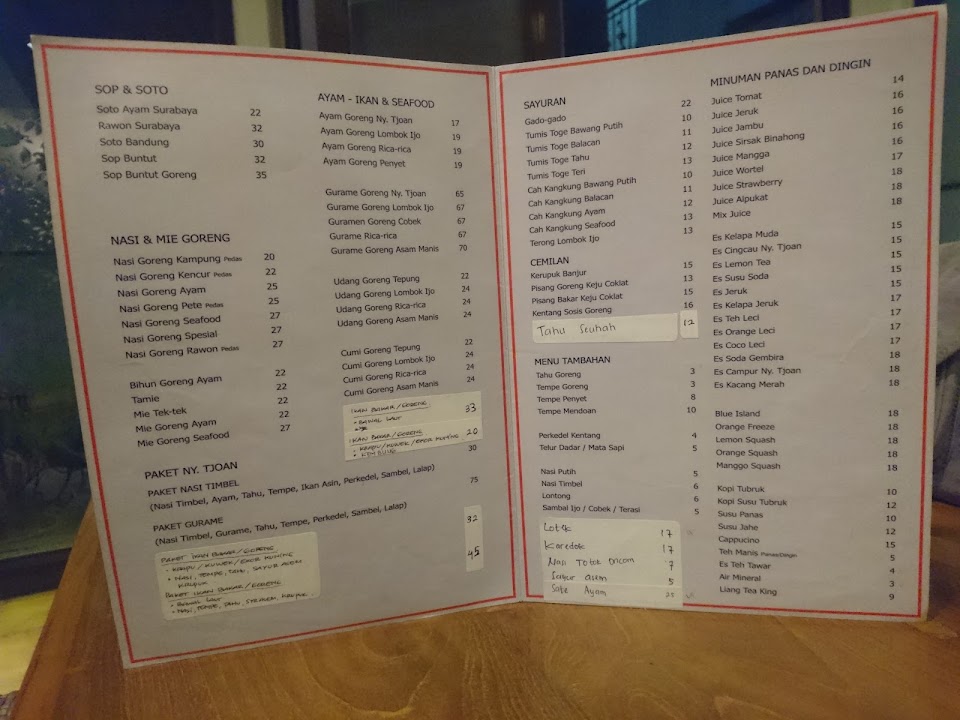 SOP & SOTO
Soto Ayam Surabaya 22
Rawon Surabaya 32
Soto Bandung 30
Sop Buntut 32
Sop Buntut Goreng 35
NASI & MIE GORENG
Nasi Goreng Kampung Pedas 20
Nasi Goreng Kencur Pedas 22
Nasi Goreng Ayam 25
Nasi Goreng Pete Pedas 25
Nasi Goreng Seafood 27
Nasi Goreng Spesial 27
Nasi Goreng Rawon Pedas 27
Bihun Goreng Ayam 22
Tamie 22
Mie Tek-tek 22
Mie Goreng Ayam 22
Mie Goreng Seafood 27
AYAM - IKAN & SEAFOOD
Ayam Goreng Ny. Tjoan 17
Ayam Goreng Lombok Ijo 19
Ayam Goreng Rica-rica 19
Ayam Goreng Penyet 19
Gurame Goreng Ny. Tjoan 65
Gurame Goreng Lombok Ijo 67
Guramen Goreng Cobek 67
Gurame Goreng Rica-rica 67
Gurame Goreng Asam Manis 70
Udang Goreng Tepung 22
Udang Goreng Lombok Ijo 24
Udang Goreng Rica-rica 24
Udang Goreng Asam Manis 24
Cumi Goreng Tepung 22
Cumi Goreng Lombok Ijo 24
Cumi Goreng Rica-rica 24
Cumi Goreng Asam Manis 24
IKAN BAKAR/GORENG
• BAWAL LAUT 33
IKAN BAKAR/GORENG
• KRAPU/KUWER/EKOR KUNING 20
PAKET NY. TJOAN
PAKET NASI TIMBEL 30
(Nasi Timbel, Ayam, Tahu, Tempe, Ikan Asin, Perkedel, Sambel, Lalap)
PAKET GURAME 75
(Nasi Timbel, Gurame, Tahu, Tempe, Perkedel, Sambel, Lalap)
PAKET IKAN BAKAR/GORENG 32
• KRAPU/KUWER/EKOR KUNING
• NASI, TEMPE, TAHU, SAYUR ASEM
KRUPUK
PAKET IKAN BAKAR/GORENG 45
• BAWAL LAUT
• NASI, TEMPE, TAHU, SYRASEM, KRUPUK
SAYURAN
Gado-gado 22
Tumis Toge Bawang Putih 10
Tumis Toge Balacan 11
Tumis Toge Tahu 12
Tumis Toge Teri 13
Cah Kangkung Bawang Putih 10
Cah Kangkung Balacan 11
Cah Kangkung Ayam 12
Cah Kangkung Seafood 13
Terong Lombok Ijo 13
CEMILAN
Kerupuk Banjur 15
Pisang Goreng Keju Coklat 13
Pisang Bakar Keju Coklat 15
Kentang Sosis Goreng 16
Tahu Seuhah 12
MENU TAMBAHAN
Tahu Goreng 3
Tempe Goreng 3
Tempe Penyet 8
Tempe Mendoan 10
Perkedel Kentang 4
Telur Dadar / Mata Sapi 5
Nasi Putih 5
Nasi Timbel 6
Lontong 6
Sambal Ijo / Cobek / Terasi 5
Lotek 17
Karedok 17
Nasi Totok Oncom 7
Sayur asem 5
Sate Ayam 25
MINUMAN PANAS DAN DINGIN
Juice Tomat 14
Juice Jeruk 16
Juice Jambu 16
Juice Sirsak Binahong 16
Juice Mangga 16
Juice Wortel 17
Juice Strawberry 18
Juice Alpukat 18
Mix Juice 18
Es Kelapa Muda 15
Es Cingcau Ny. Tjoan 15
Es Lemon Tea 15
Es Susu Soda 15
Es Jeruk 15
Es Kelapa Jeruk 17
Es Teh Leci 17
Es Orange Leci 17
Es Coco Leci 17
Es Soda Gembira 18
Es Campur Ny. Tjoan 18
Es Kacang Merah 18
Blue Island 18
Orange Freeze 18
Lemon Squash 18
Orange Squash 18
Manggo Squash 18
Kopi Tubruk 10
Kopi Susu Tubruk 12
Susu Panas 10
Susu Jahe 12
Cappucino 15
Teh Manis Panas/Dingin 5
Es Teh Tawar 4
Air Mineral 3
Liang Tea King 9